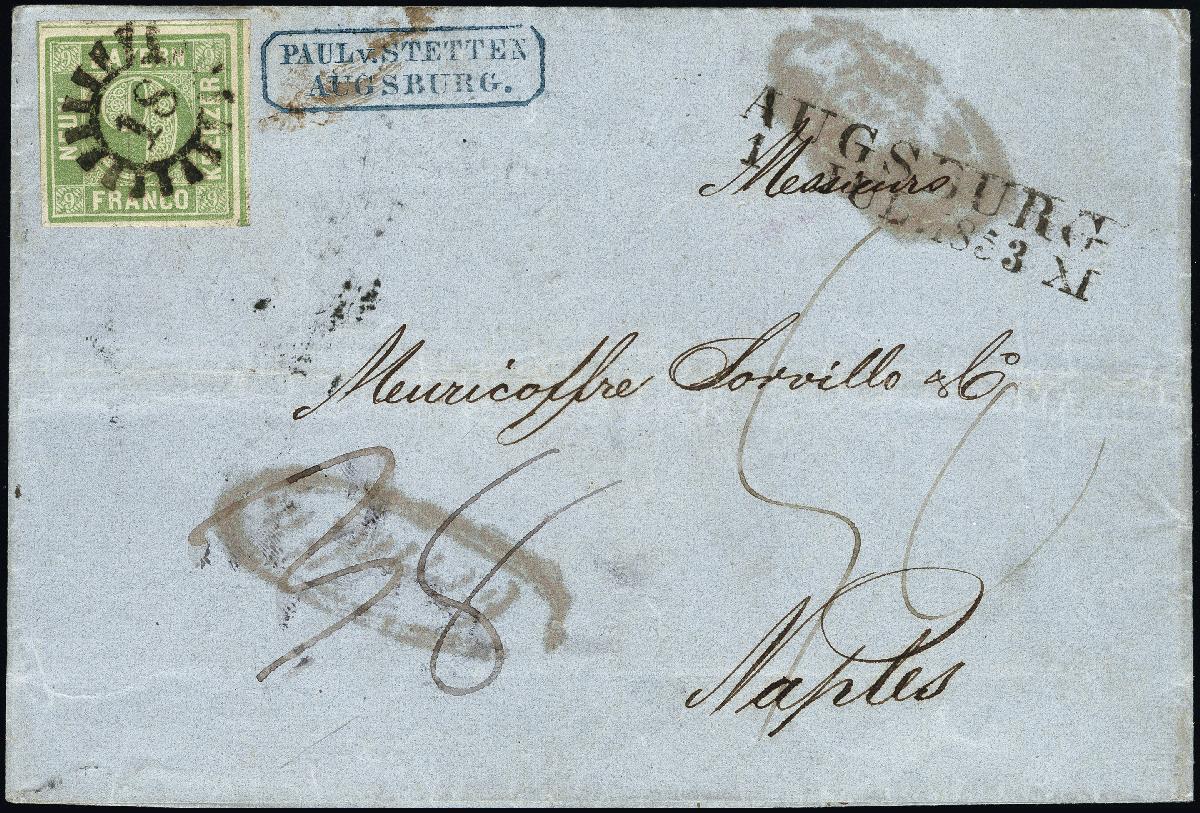 BAYERN
NEUN
KREUZER
FRANCO
9
9
9
9
9
18
PAUL v. STETTEN
AUGSBURG.
AUGSBURG
1 JUL. 1853 XI
Messieurs
Meuricoffre Sorvillo & Co
38
Naples